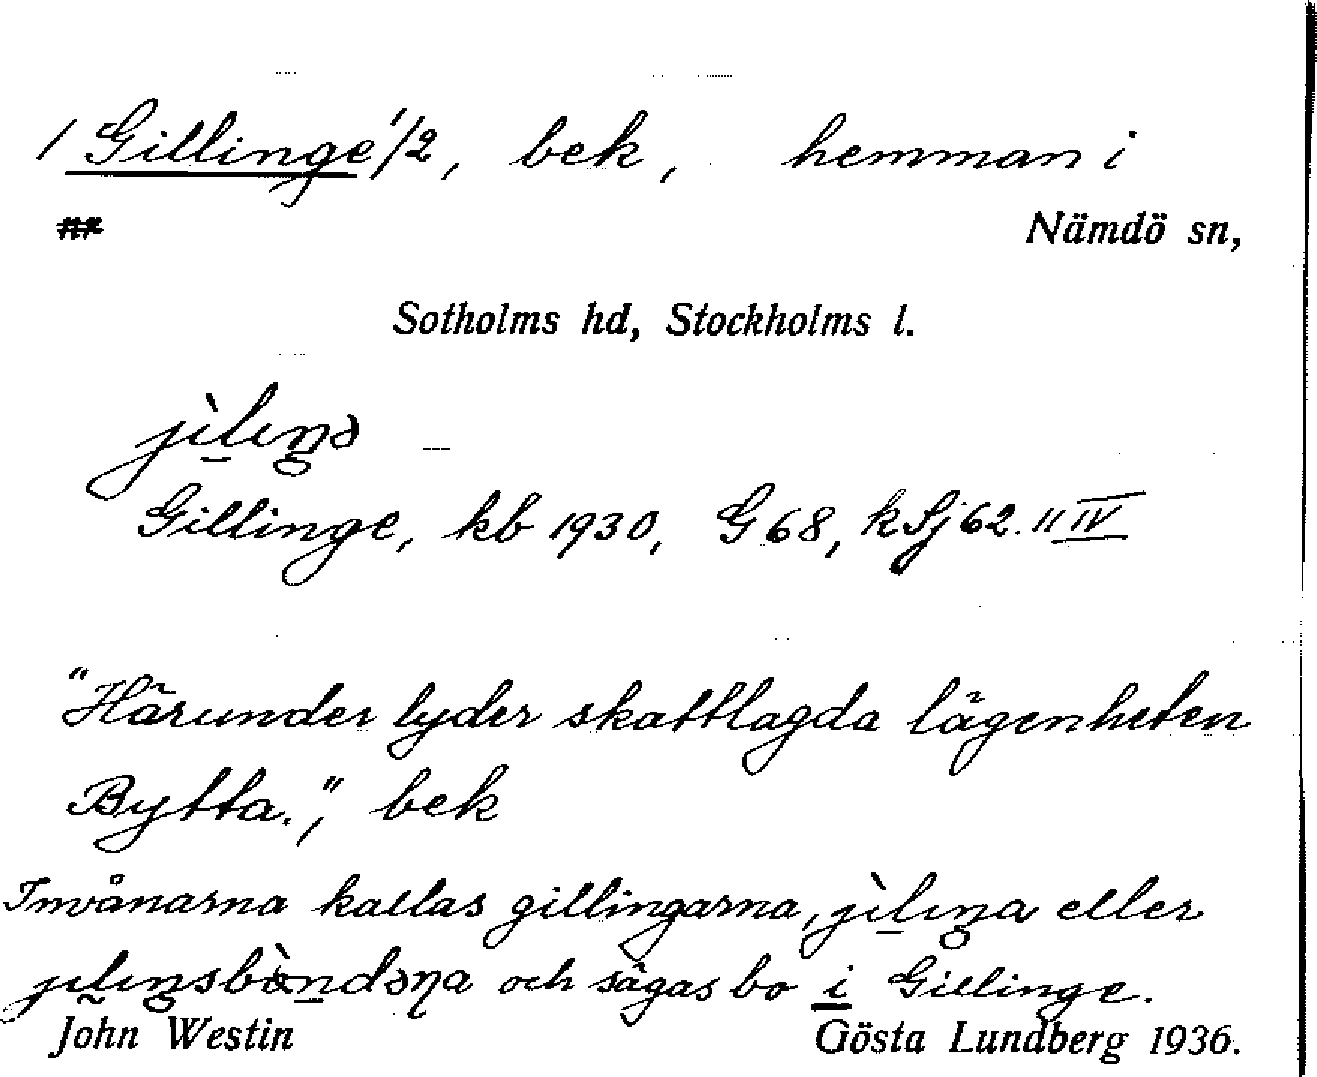 / Gillinge 1/2, bek, hemman i
Nämdö sn,
Sotholms hd, Stockholms l.
jìlıŋə
Gillinge, kb 1930, G 68, kSj 62. II IV
"Härunder lyder skattlagda lägenheten
Bytta.", bek
Invånarna kallas gillingarna, jìlıŋa eller
jılıŋsbòndəɳa och sägas bo i Gillinge.
John Westin Gösta Lundberg 1936.